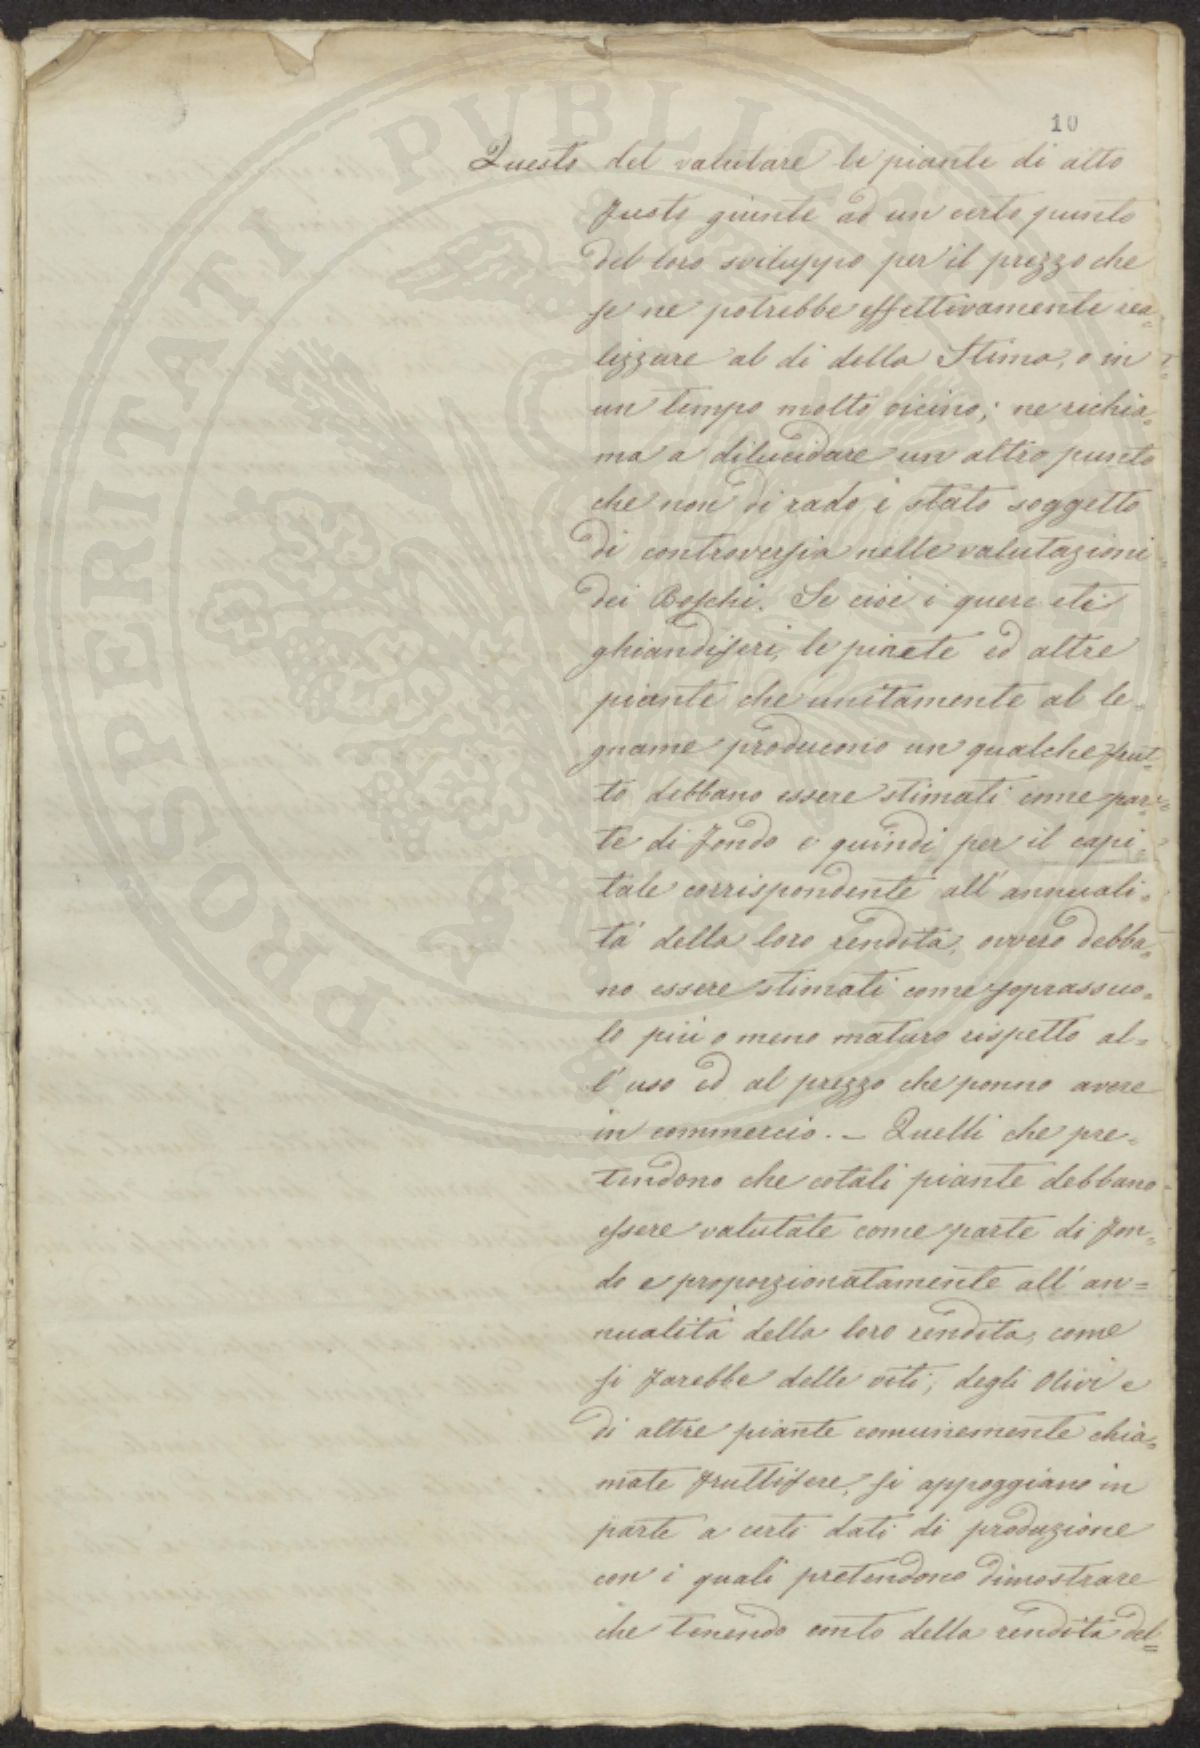 PROSPERITATI PUBLICAE AUGENDAE
10
Questo del valutare le piante di alto
fusto giunte ad un certo punto
del loro sviluppo per il prezzo che
se ne potrebbe effettivamente rea=
lizzare al di della Stima, o in
un tempo molto vicino; ne richia=
ma a dilucidare un altro punto
che non di rado è stato soggetto
di controversia nelle valutazioni
dei Boschi. Se cioè i querceti
ghiandiferi, le pinete ed altre
piante che unitamente al le=
gname producono un qualche frut=
to debbano essere stimati come par=
te di fondo e quindi per il capi=
tale corrispondente all'annuali=
tà della loro rendita, ovvero debba=
no essere stimati come soprassuo=
lo più o meno maturo rispetto al=
l'uso ed al prezzo che ponno avere
in commercio. – Quelli che pre=
tendono che cotali piante debbano
essere valutate come parte di fon=
do e proporzionatamente all'an=
nualità della loro rendita, come
si farebbe delle viti, degli Olivi e
di altre piante comunemente chia=
mate fruttifere, si appoggiano in
parte a certi dati di produzione
con i quali pretendono dimostrare
che tenendo conto della rendita del=